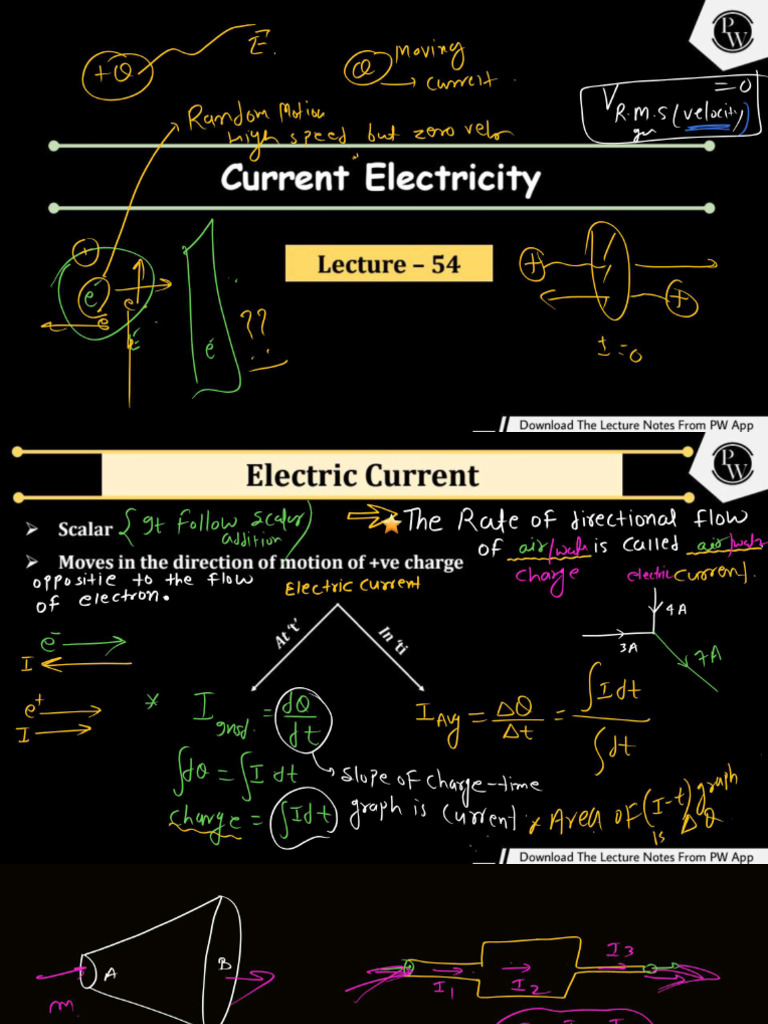 +Q
E
Q Moving
→ current
PW
Random Motion
High speed but zero velo
V R.M.S (velocity) = 0
Current Electricity
Lecture – 54
+
e
e
e
e
??
+
+
I = 0
Download The Lecture Notes From PW App
Electric Current
PW
➢ Scalar { It follow scalar addition }
➢ Moves in the direction of motion of +ve charge
oppositie to the flow
of electron.
★ The Rate of directional flow
of air/water is called air/water
charge electric current.
Electric Current
At 't'
In 'ti
e⁻
I
e⁺
I
4A
3A
7A
* I = dQ/dt
I Avg = ΔQ/Δt = ∫I dt / ∫dt
∫dQ = ∫I dt
charge = ∫I dt
slope of charge-time
graph is current
* Area of (I-t) graph
is ΔQ
Download The Lecture Notes From PW App
A
B
m
I1
I2
I3